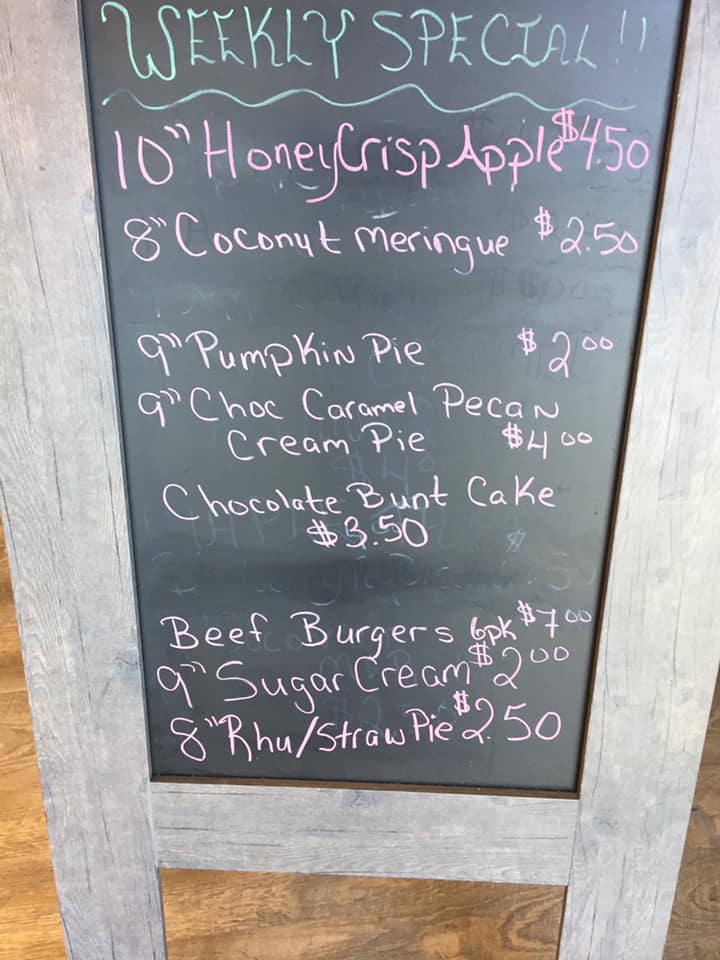 WEEKLY SPECIAL!!
10" HoneyCrisp Apple $4.50
8" Coconut Meringue $2.50
9" Pumpkin Pie $2.00
9" Choc Caramel Pecan
Cream Pie $4.00
Chocolate Bunt Cake
$3.50
Beef Burgers 6pk $7.00
9" Sugar Cream $2.00
8" Rhu/Straw Pie $2.50